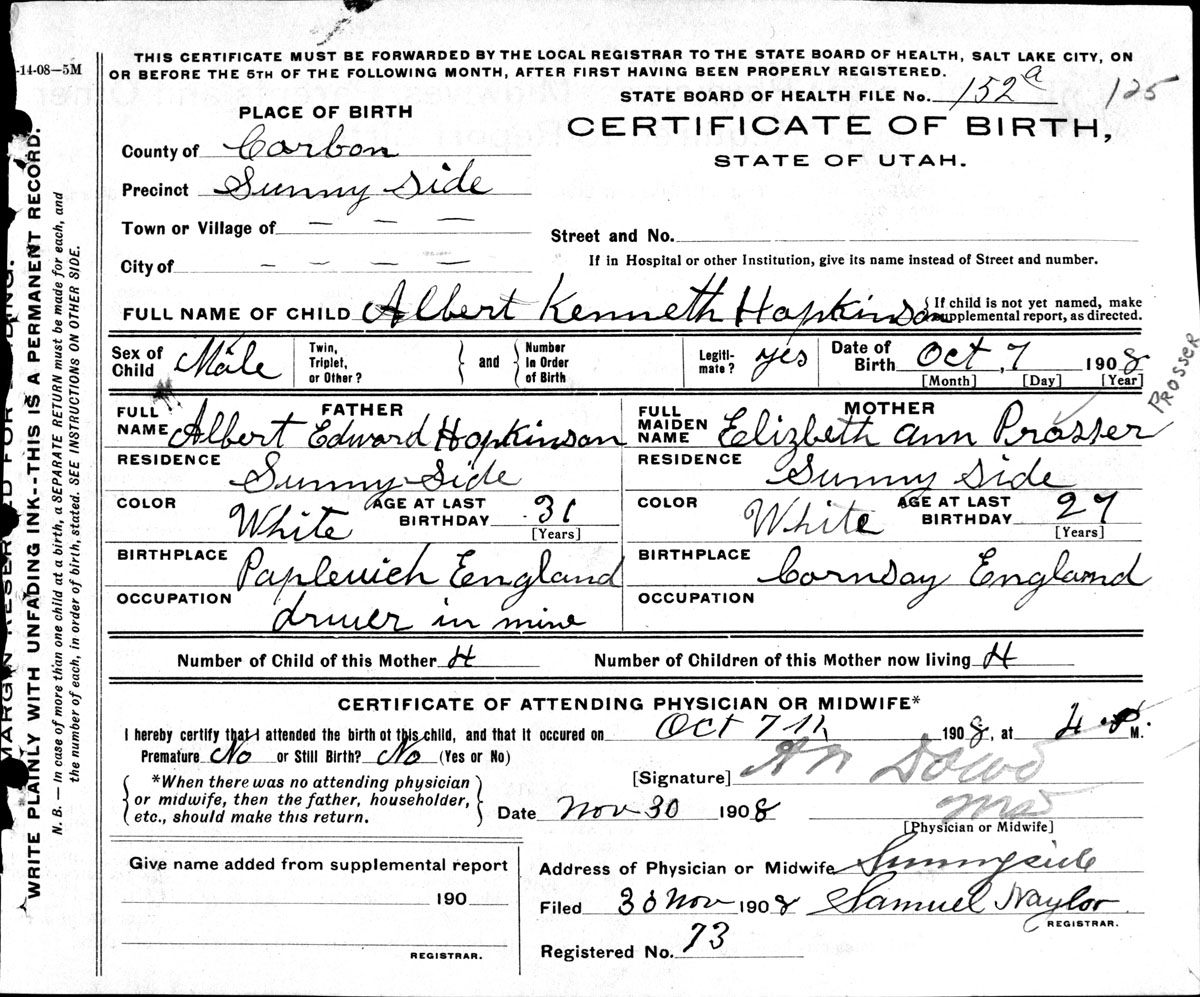 -14-08—5M
THIS CERTIFICATE MUST BE FORWARDED BY THE LOCAL REGISTRAR TO THE STATE BOARD OF HEALTH, SALT LAKE CITY, ON
OR BEFORE THE 5TH OF THE FOLLOWING MONTH, AFTER FIRST HAVING BEEN PROPERLY REGISTERED.
STATE BOARD OF HEALTH FILE No. 152a 125
PLACE OF BIRTH
CERTIFICATE OF BIRTH,
STATE OF UTAH.
County of Carbon
Precinct Sunny side
Town or Village of — — — —
Street and No.
City of — — — —
If in Hospital or other Institution, give its name instead of Street and number.
FULL NAME OF CHILD Albert Kenneth Hopkinson
If child is not yet named, make
supplemental report, as directed.
Sex of Child Male
Twin, Triplet, or Other?
and
Number in Order of Birth
Legiti-mate? yes
Date of Birth Oct, 7 1908
[Month] [Day] [Year]
PROSSER
FATHER
FULL NAME Albert Edward Hopkinson
RESIDENCE
Sunny Side
COLOR White AGE AT LAST BIRTHDAY 31
[Years]
BIRTHPLACE Paplewich England
OCCUPATION driver in mine
MOTHER
FULL MAIDEN NAME Elizbeth ann Prosser
RESIDENCE
Sunny side
COLOR White AGE AT LAST BIRTHDAY 27
[Years]
BIRTHPLACE Cornsay England
OCCUPATION
Number of Child of this Mother 4 Number of Children of this Mother now living 4
CERTIFICATE OF ATTENDING PHYSICIAN OR MIDWIFE*
I hereby certify that I attended the birth of this child, and that it occured on Oct 7th 1908, at 4 P. M.
Premature No or Still Birth? No (Yes or No)
*When there was no attending physician
or midwife, then the father, householder,
etc., should make this return.
[Signature] Dowd
Date Nov 30 1908
[Physician or Midwife]
Give name added from supplemental report
190
REGISTRAR.
Address of Physician or Midwife Sunnyside
Filed 30 Nov 1908 Samuel Naylor
REGISTRAR.
Registered No. 73
WRITE PLAINLY WITH UNFADING INK--THIS IS A PERMANENT RECORD.
N. B. — In case of more than one child at a birth, a SEPARATE RETURN must be made for each, and
the number of each, in order of birth, stated. SEE INSTRUCTIONS ON OTHER SIDE.